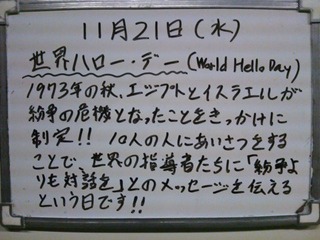 11月21日(水)
世界ハロー・デー(World Hello Day)
1973年の秋、エジプトとイスラエルが
紛争の危機となったことをきっかけに
制定!! 10人の人にあいさつをする
ことで、世界の指導者たちに「紛争よ
りも対話を」とのメッセージを伝える
という日です!!